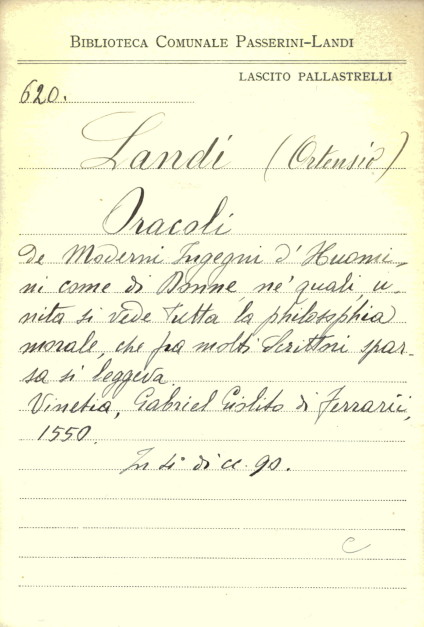 BIBLIOTECA COMUNALE PASSERINI-LANDI
LASCITO PALLASTRELLI
620.
Landi (Ortensio)
Oracoli
de Moderni Ingegni d' Huomi-
ni come di Donne, ne' quali, u-
nita si vede tutta la philosophia
morale, che fra molti Scrittori spar-
sa si leggeva.
Vinetia, Gabriel Giolito di Ferrarii,
1550.
In 4° di cc. 90.
C